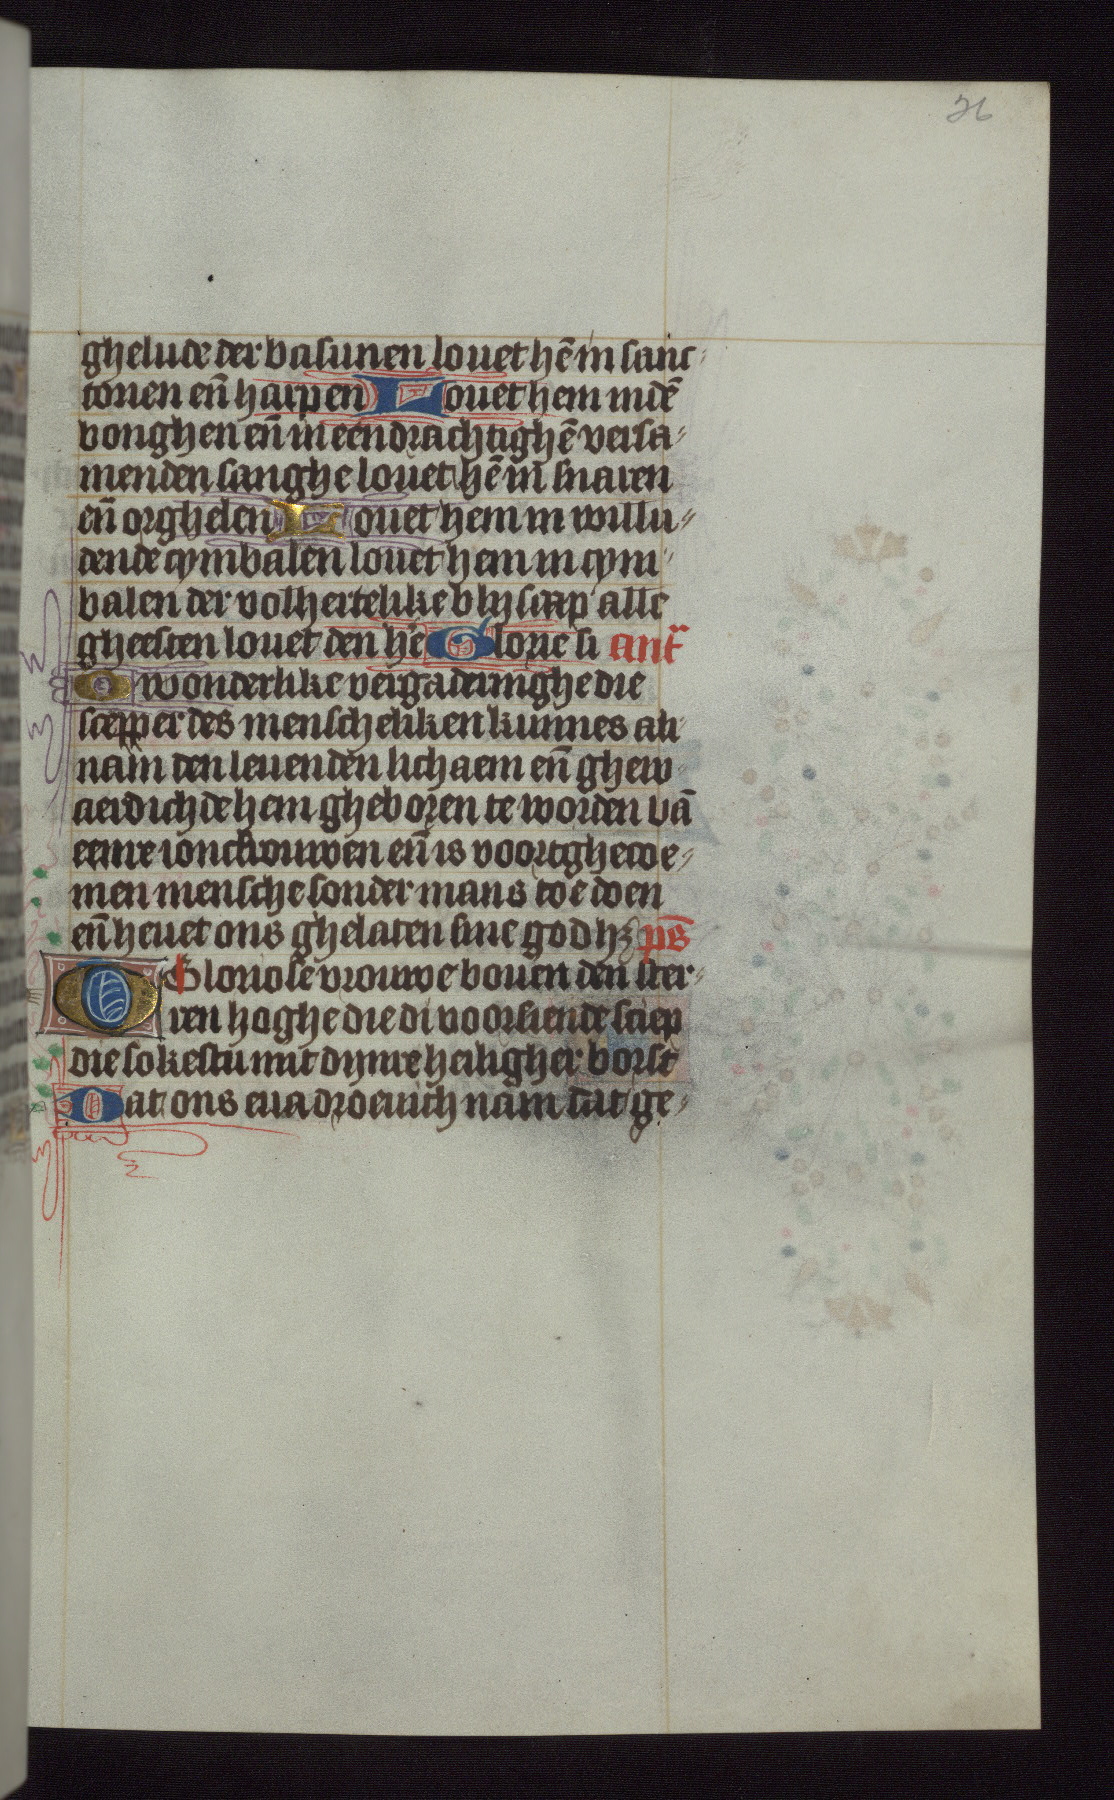 26
ghelude der basunen louet hē in sanc
tonen en̄ harpen Louet hem in dē
bonghen en̄ in eendrachtighē versa
menden sanghe louet hē in snaren
en̄ orghelen Louet hem in willu
dende cymbalen louet hem in cym
balen der volhertelike blyscap alle
gheesten louet den hē Glorie si ant̄
O wonderlike vergaderinghe die
scepper des menscheliken kunnes an
nam den leuenden lichaem en̄ ghew
aerdichde hem gheboren te worden vā
eenre ioncfrouwen en̄ is voortghecoe
men mensche sonder mans toe doen
en̄ heuet ons ghelaten sine godhʒ ps̄
O Gloriose vrouwe bouen den ster
ren hoghe die di voorsiende sciep
die sokestu mit dynre heiligher borst
Dat ons eua droeuich nam dat ge